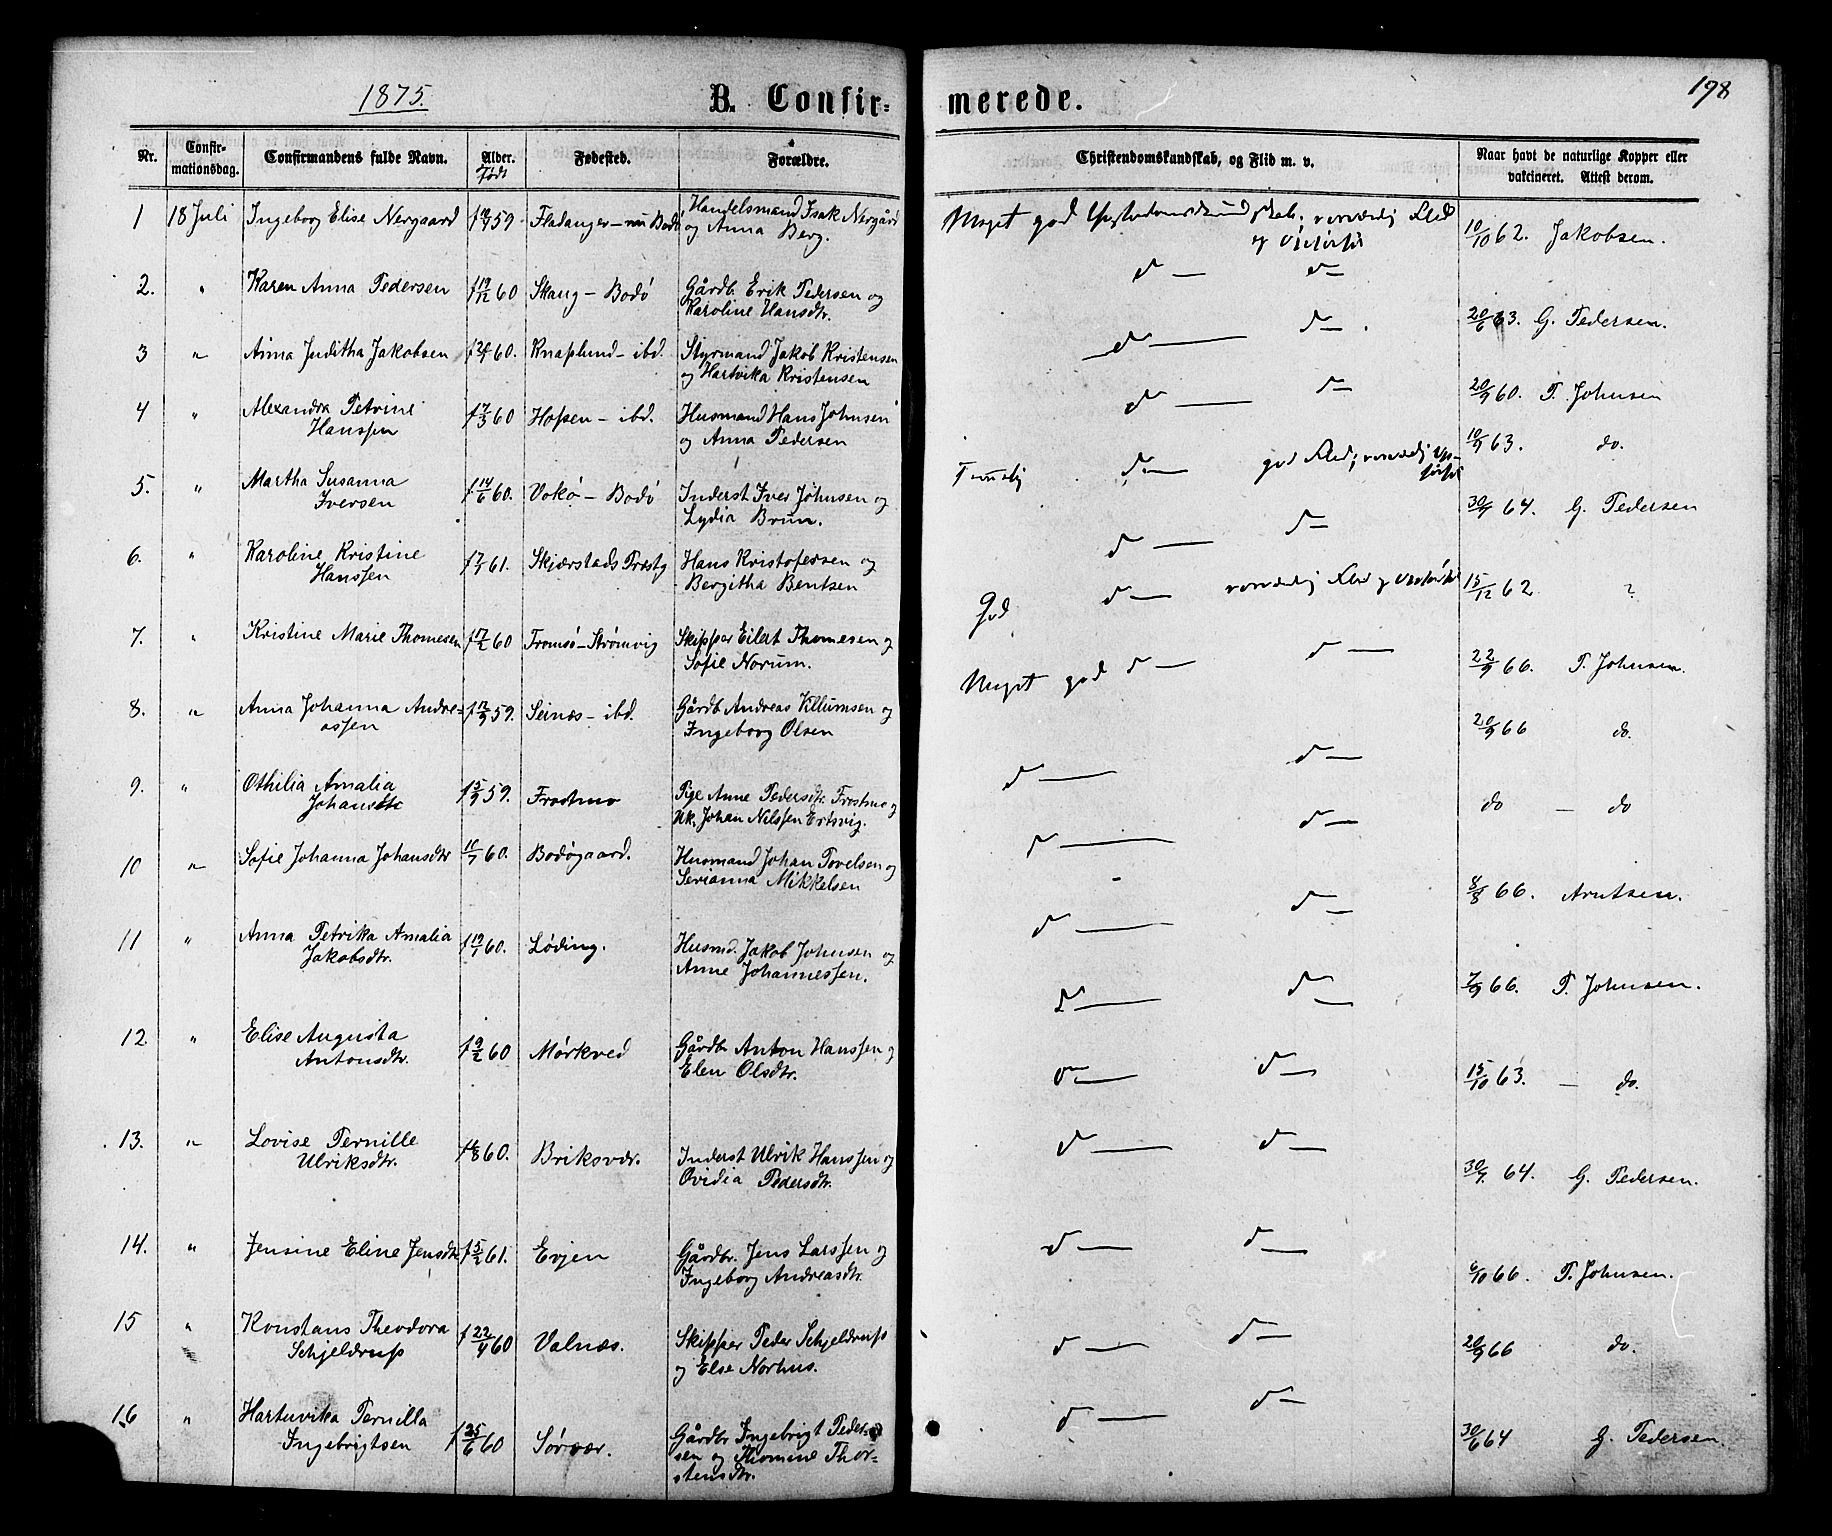 1875.
B. Confir- merede.
198
Nr. Confirmationsdag. Confirmandens fulde Navn. Alder. Født Fødested. Forældre. Christendomskundskab, og Flid m. v. Naar havt de naturlige Kopper eller vakcineret. Attest derom.
1 18 Juli Ingeborg Elise Nergaard 59 Fladanger - nu Bodö Handelsmand Isak Nergård
og Anna Berg.
Meget god Christendomskundskab, Flid
og
10/10 62. Jakobsen.
2. " Karen Anna Pedersen f 19/12 60 Skaug - Bodö Gårdb. Erik Pedersen og
Karoline Hansdtr.
d — d —
20/6 63. G. Pedersen.
3 " Anna Juditha Jakobsen 60. Knaplund - ibd. Styrmand Jakob Kristensen
og Hartvika Kristensen
d — d —
20/9 60. P. Johnsen
4 " Alexandra Petrine
Hanssen
f 7/3 60 Hopen - ibd. Husmand Hans Johnsen
og Anna Pedersen
d — d —
10/9 63. do.
5. " Martha Susanna
Iversen
f 14/6 60. Vokø - Bodö Inderst Iver Johnsen og
Lydia Brun.
Temelig d — god Flid,
30/9 64. G. Pedersen
6. " Karoline Kristine
Hanssen
61. Skjærstads Præstg Hans Kristofersen og
Bergitha Bentsen
d — d —
15/12 62 ?
7. " Kristine Marie Thomesen f 17/2 60 Tromsö - Strömvig Skipper Eilert Thomesen og
Sofie Norum.
God d — Flid og
22/9 66. P. Johnsen.
8. " Anna Johanna Andre-
assen
f 12/9 59. Seinæs - ibd. Gårdb Andreas Villumsen og
Ingeborg Olsen
Meget god d — d —
20/9 66 do.
9. " Othilia Amalia
f 5/9 59. Frostmo Pige Anne Pedersdtr. Frostmo og
Uk. Johan Nilssen Ertsvig.
d — d —
do — do
10 " Sofie Johanna Johansdtr 10/7 60. Bodögaard. Husmand Johan Povelsen og
Serianna Mikkelsen
d — d —
8/8 66. Arntsen.
11 " Anna Petrika Amalia
Jakobsdtr.
f 19/1 60. Löding. Husmd. Jakob Johnsen og
Anne Johannessen.
d — d —
7/9 66. P. Johnsen.
12. " Elise Augusta
Antonsdtr.
f 9/2 60 Mörkved Gårdbr Anton Hanssen og
Elen Olsdtr.
d — d —
15/10 63. — do.
13. " Lovise Pernille
Ulriksdtr.
60. Briksvær. Inderst Ulrik Hanssen og
Ovidia Pedersdtr.
d — d —
30/9 64. G. Pedersen.
14. " Jensine Eline Jensdtr f 5/2 61. Evjen Gårdbr. Jens Larssen og
Ingeborg Andreasdtr.
d — d —
6/10 66. P. Johnsen.
15 " Konstans Theodora
Schjeldrup
f 22/4 60 Valnæs. Skipper Peder Schjeldrup
og Else Norhus.
d — d —
20/9 66 do.
16 " Hartuvika Pernilla
Ingebrigtsen
f 25/6 60 Sörvær. Gårdbr Ingebrigt Peder-
sen og Thomine Thor-
stensdtr.
d — d —
30/6 64 G. Pedersen.